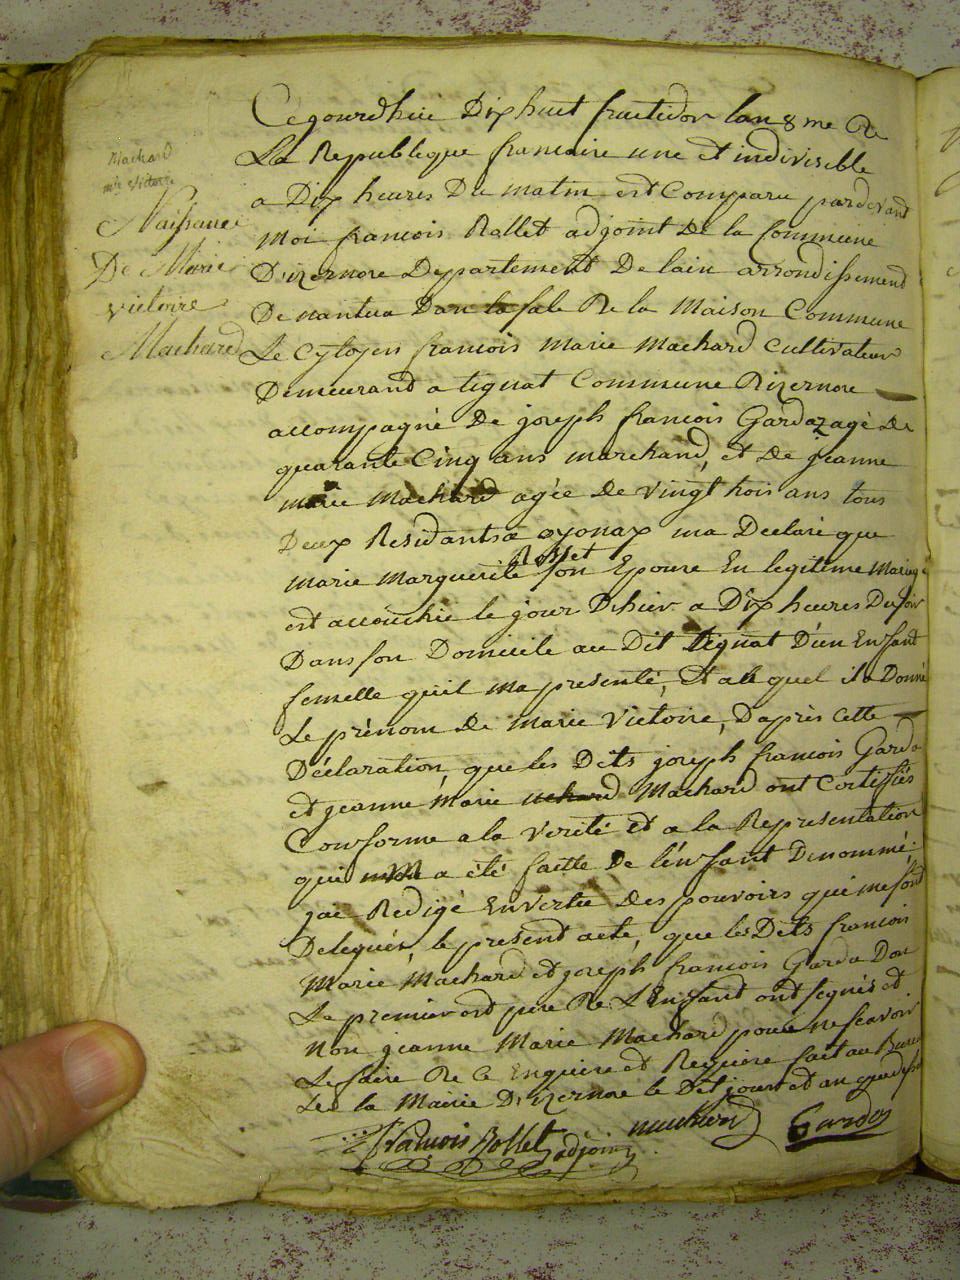 Machard
mie Victoire
Naissance
De Marie
victoire
Machard
Cejourdhui Dix huit fructidor lan 8 me De
La Republique francaise une et indivisible
a Dix heures Du matin est Comparu pardevant
Moi francois Rollet adjoint De la Commune
Dizernore Departement De lain arrondissement
De nantua Dan la sale De la Maison Commune
Le Cytoyen francois Marie Machard Cultivateur
Demeurand a tignat Commune Dizernore
accompagné De joseph francois Gardaz agé De
quarante Cinq ans marchand, et De jeanne
marie Machard agée De vingt trois ans tous
Deux Residants a oyonax ma Declaré que
Marie Marguerite Rosset son Epouse En legitime Mariage
est accouchie le jour Dhier a Dix heures Du soir
Dans son Domicile au Dit tignat D'un Enfant
femelle quil ma presenté, Et au quel il a Donné
Le prénom De Marie Victoire, Daprès Cette
Déclaration, que les Dits joseph francois Garda
et jeanne Marie Machard ont Certifiés
Conforme a la verité et a la Representation
qui m a été faitte De l'énfant Denommé,
jai Redigé En vertu Des pouvoirs qui me sont
Delegués, le present acte, que les Dits francois
Marie Machard et joseph francois Garda Dont
Le premier est pere De L'Enfant ont signés et
Non jeanne Marie Machard pour ne scavoir
Le faire De Ce Enquise et Requise fait au Bureau
De la Mairie D'izernore le Dit jour et an que dessus
francois Rollet adjoint machard Gardaz